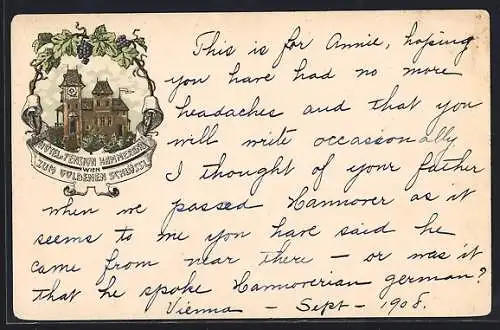 This is for Annie, hoping
you have had no more
headaches and that you
will write occassonally
I thought of your father
when we passed Hannover as it
seems to me you have said he
came from near there — or was it
that he spoke Hannoverian german?
Vienna — Sept — 1908.
HOTEL & PENSION HAMMERAND
WIEN
ZUM GOLDENEN SCHLÜSSL